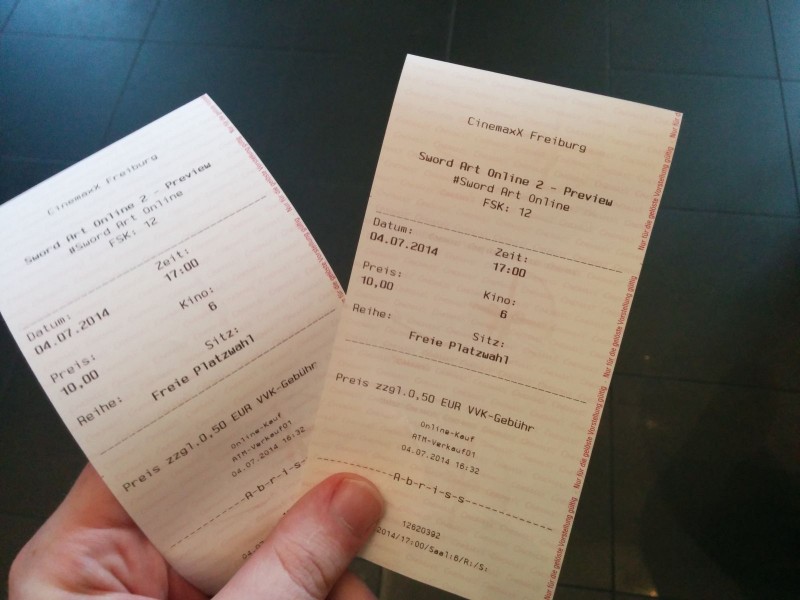 CinemaxX Freiburg
Sword Art Online 2 - Preview
#Sword Art Online
FSK: 12
Datum: Zeit:
04.07.2014 17:00
Preis: Kino:
10,00 6
Reihe: Sitz:
Freie Platzwahl
Preis zzgl.0,50 EUR VVK-Gebühr
Online-Kauf
ATM-Verkauf01
04.07.2014 16:32
-A-b-r-i-s-s-
CinemaxX Freiburg
Sword Art Online 2 - Preview
#Sword Art Online
FSK: 12
Datum: Zeit:
04.07.2014 17:00
Preis: Kino:
10,00 6
Reihe: Sitz:
Freie Platzwahl
Preis zzgl.0,50 EUR VVK-Gebühr
Online-Kauf
ATM-Verkauf01
04.07.2014 16:32
-A-b-r-i-s-s-
12620392
2014/17:00/Saal:6/R:/S:
Nur für die gelöste Vorstellung gültig
Nur für die gelöste Vorstellung gültig
Nur für die gelöste Vorstellung gültig
Nur für die gelöste Vorstellung gültig